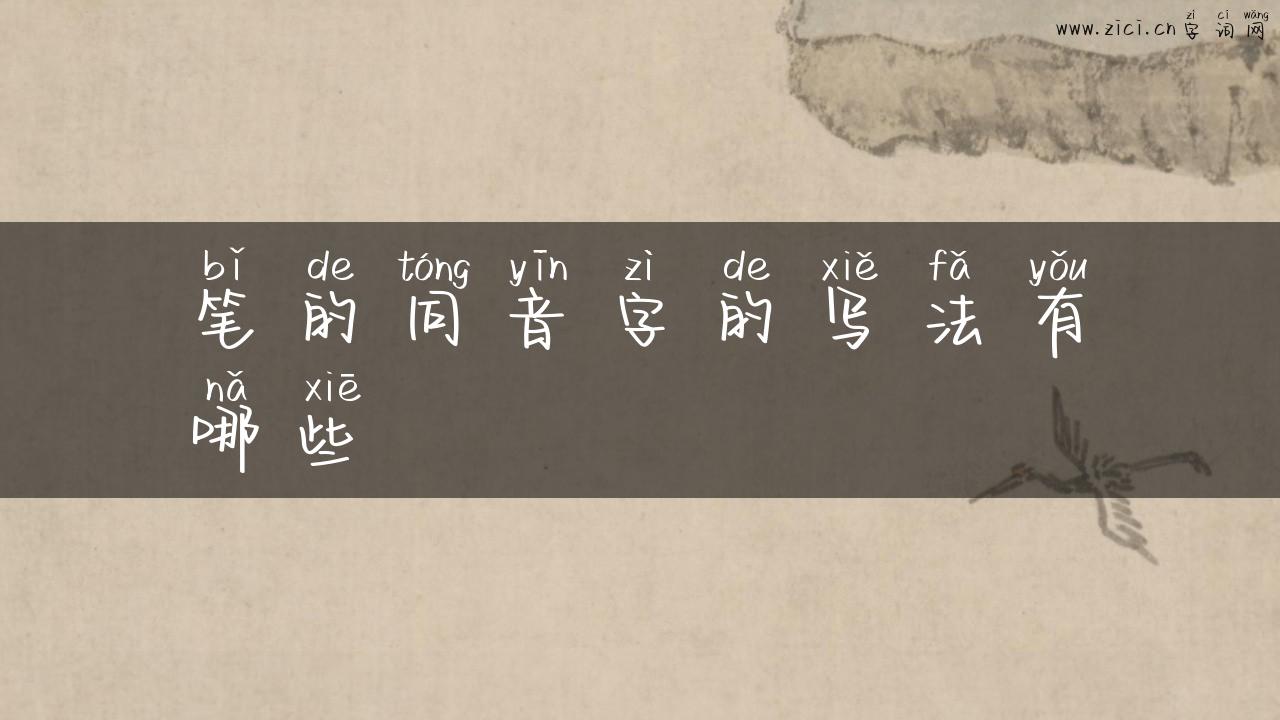 zì cí wǎng
www.zici.cn 字词网
bǐ de tóng yīn zì de xiě fǎ yǒu
笔的同音字的写法有
nǎ xiē
哪些